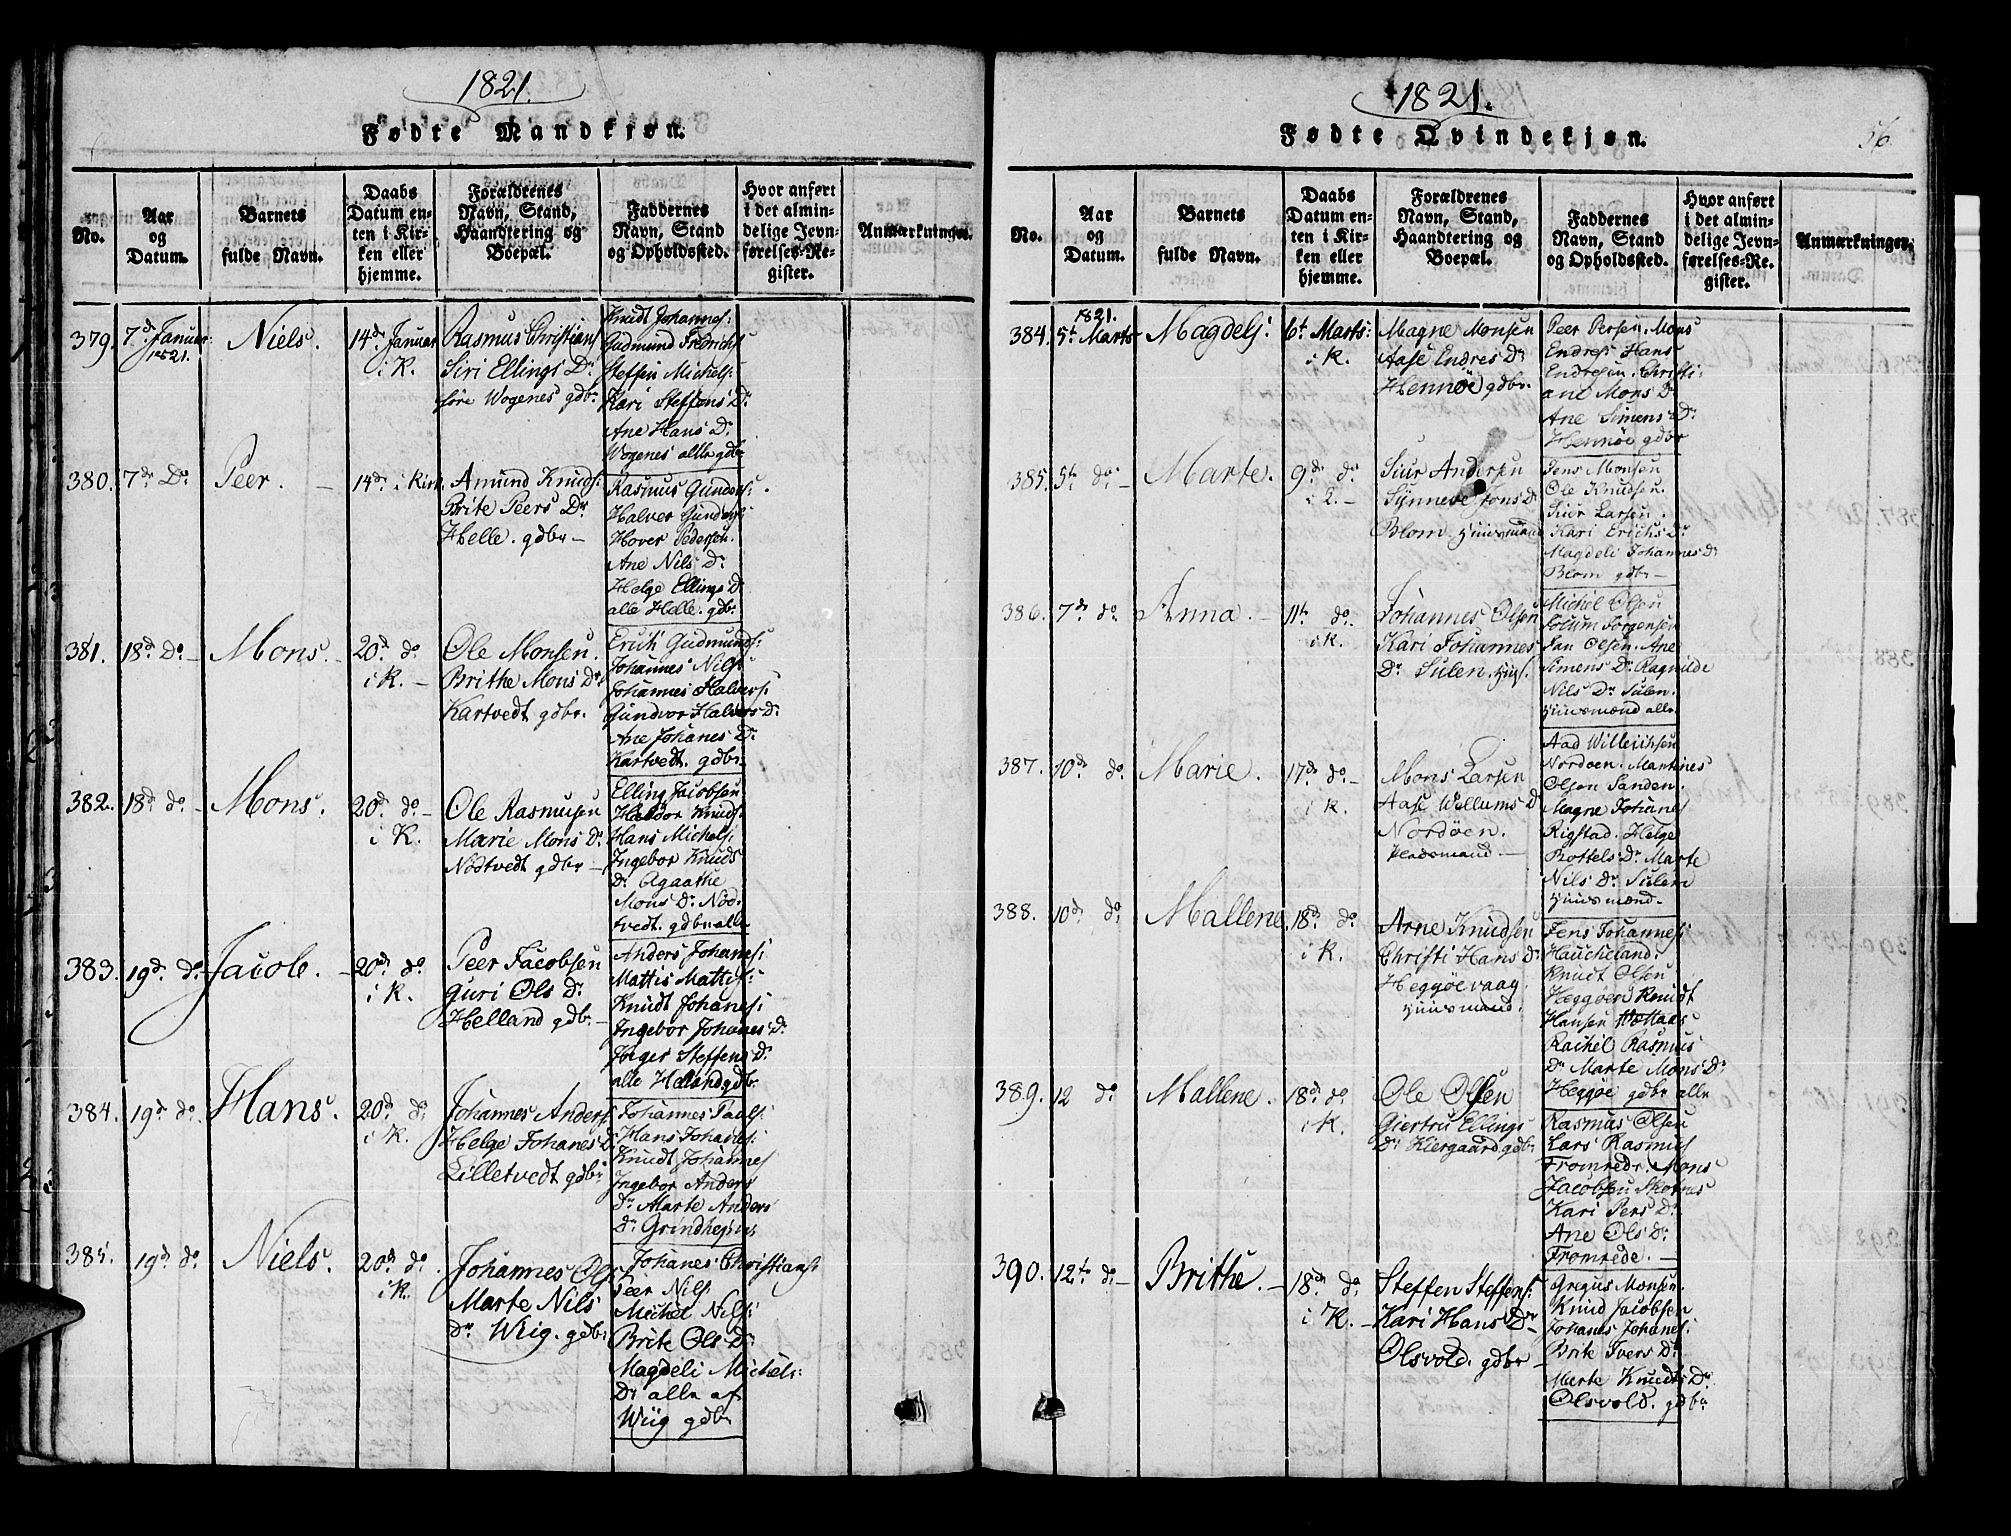 1821.
Fødte Mandkjøn.
No.
Aar
og
Datum.
Barnets
fulde Navn.
Daabs
Datum en-
ten i Kir-
ken eller
hjemme.
Forældrenes
Navn, Stand,
Haandtering og
Boepæl.
Faddernes
Navn, Stand
og Opholdssted.
Hvor anført
i det almin-
delige Jevn-
førelses-Re-
gister.
Anmærkninger.
379.
7d Januar:
1821.
Niels.
14d Januar
i K.
Rasmus Christians
Siri Ellings Dr
søre Wogenes gdbr
Knudt Johannes:
Gudmund Fredrichs
Steffen Michels:
Kari Steffens Dr
Ane Hans Dr
Wogenes alle gdbr
380.
7de Do
Peer. —
14d i Kirk.
Amund Knuds:
Brite Peers Dr
Helle. gdbr —
Rasmus Gunders:
Halver Gunders:
Hover Pedersen.
Ane Nils Dr
Helge Ellings D
alle Helle. gdbr
381.
18d Do —
Mons. —
20d do
i K. —
Ole Monsen.
Brithe Mons Dr
Kartvedt gdbr.
Erich Gudmunds:
Johannes Nils:
Johannes Halvers:
Gundvor Halvers Dr
Ane Johanes Dr
Kartvedt. gdbr.
382.
18d do —
Mons.
20d do —
i K.
Ole Rasmusen
Marie Mons Dr
Nødtvedt gdbr —
Elling Jacobsen
Haldor Knuds:
Hans Michels:
Ingebor Knuds
Dr Agaathe
Mons Dr Nød-
tvedt. gdbr alle
383.
19d do —
Jacob. —
20de do
i K.
Peer Jacobsen
Guri Ols Dr
Helland gdbr —
Anders Johanes:
Mattis Mattis:
Knudt Johanes:
Ingebor Johanes Dr
Jørger Steffens Dr
alle Helland gdbr
384.
19d do
Hans.
20d do
i K.
Johannes Anders
Helge Johanes D
Lilletvedt gdbr
Johannes Pauls:
Hans Johanes:
Knudt Johannes
Ingebor Anders
Dr Marte Anders
Dr Grindheym
385.
19d do
Niels.
20d do.
i K.
Johannes Ols
Marte Nils
Dr Wiig. gdbr
Johanes Christians:
Peer Nils
Michel Nils:
Brite Ols Dr
Magdeli Michels:
Dr alle af
Wiig gdbr
1821.
Fødte Qvindekjøn.
56
No.
Aar
og
Datum.
Barnets
fulde Navn.
Daabs
Datum en-
ten i Kir-
ken eller
hjemme.
Forældrenes
Navn, Stand,
Haandtering og
Boepæl.
Faddernes
Navn, Stand
og Opholdssted.
Hvor anført
i det almin-
delige Jevn-
førelses-Re-
gister.
Anmærkninger.
384.
1821.
5t Marts
Magdels:
6t Marts:
i K.
Magne Monsen
Aase Endres Dr
Hennøe gdbr.
Peer Persen. Mons
Endres: Hans
Endresen. Christi-
ane Mons Dr
Ane Simens Dr
Hennøe gdbr
385.
5t do —
Marte.
9de do
i K. —
Siur Andersen
Synneve Jons Dr
Blom Huusmand
Jens Monsen
Ole Knudsen.
Siur Larsen.
Kari Erichs Dr
Magdeli Johannes Dr
Blom gdbr —
386.
7de do
Anna. —
11t do.
i K.
Johannes Olsen
Kari Johannes
Dr Sulen. Huus.
Michel Olsen
Jottum Jorgensen
Jan Olsen. Ane
Simens Dr Ragnilde
Nils Dr Sulen.
Huusmænd alle
387.
10de do
Marie.
17de do —
i K.
Mons Larsen
Aase Wellums D
Nordøen.
Pladsmand. —
Aad Willeichsen
Nordoen. Martines
Olsen Sanden.
Magne Johanes
Rigstad. Helge
Bottels Dr Marte
Nils Dr Sulen
Huusmænd.
388.
10de do
Mallene.
18de do
i K.
Arne Knudsen
Christi Hans Dr
Heggøevaag.
Huusmand.
Jens Johannes:
Haucheland.
Knudt Olsen
Heggøen Knudt
Hansen
Rachel Rasmus
Dr Marte Mons Dr
Heggøe gdbr alle
389.
12 do
Mallene.
18de do
i K.
Ole Olsen
Giertru Ellings
Dr Kiergaard gdbr
Rasmus Olsen
Lars Rasmus
Fromredr. Mons
Jacobsen Skotnes
Kari Pers Dr
Ane Ols Dr
Fromrede. —
390.
12te do —
Brithe. —
18de do
i K. —
Steffen Steffens:
Kari Hans Dr
Olsvold. gdbr —
Gregus Monsen.
Knud Jacobsen
Johanes Johanes:
Brite Ivers Dr
Marte Knuds Dr
Olsvold. gdbr